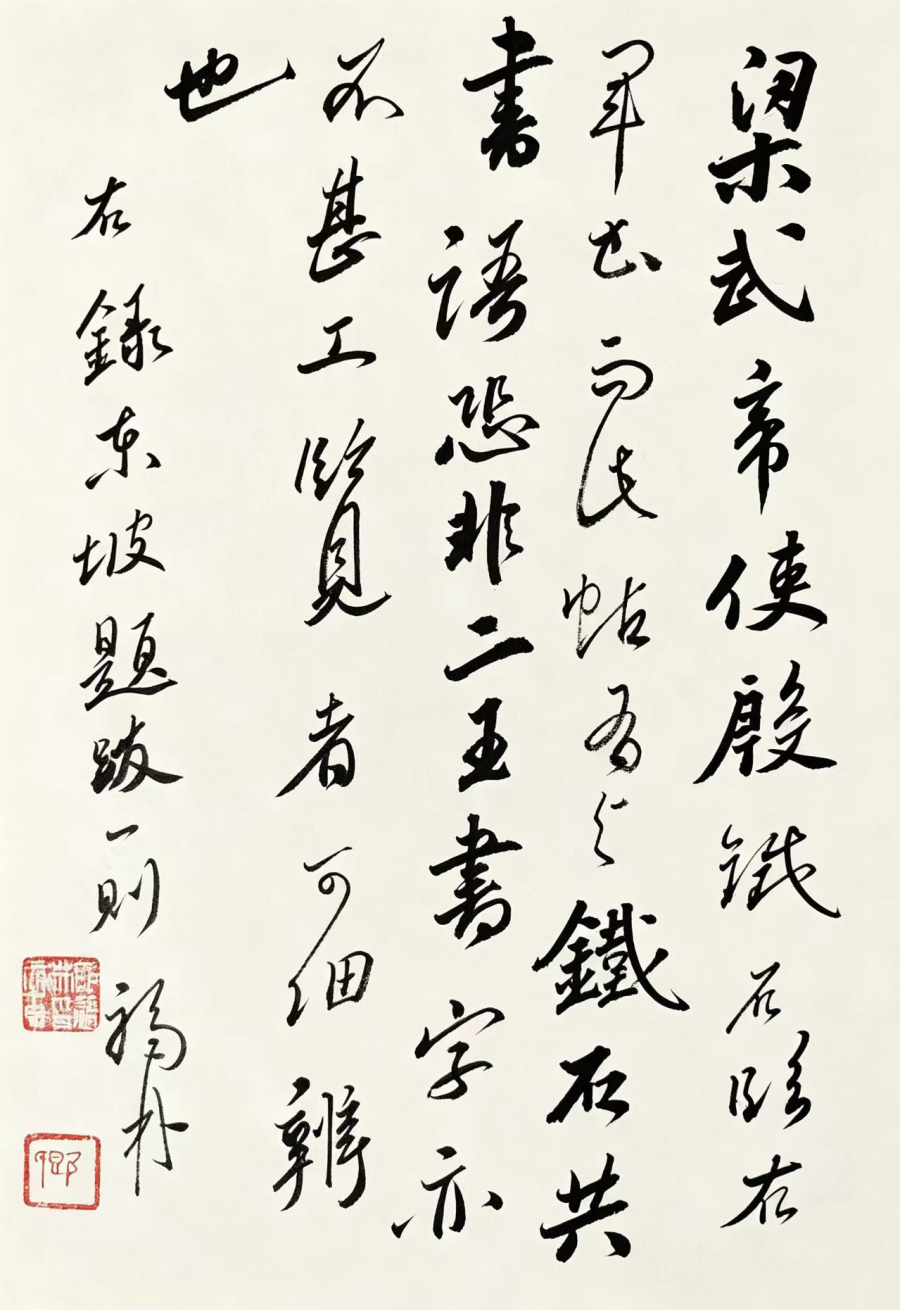 梁武帝使殷鐵石臨右
軍書而此帖有與鐵石共
書語恐非二王書字亦
不甚工覽者可細辨
也
右錄東坡題跋一則